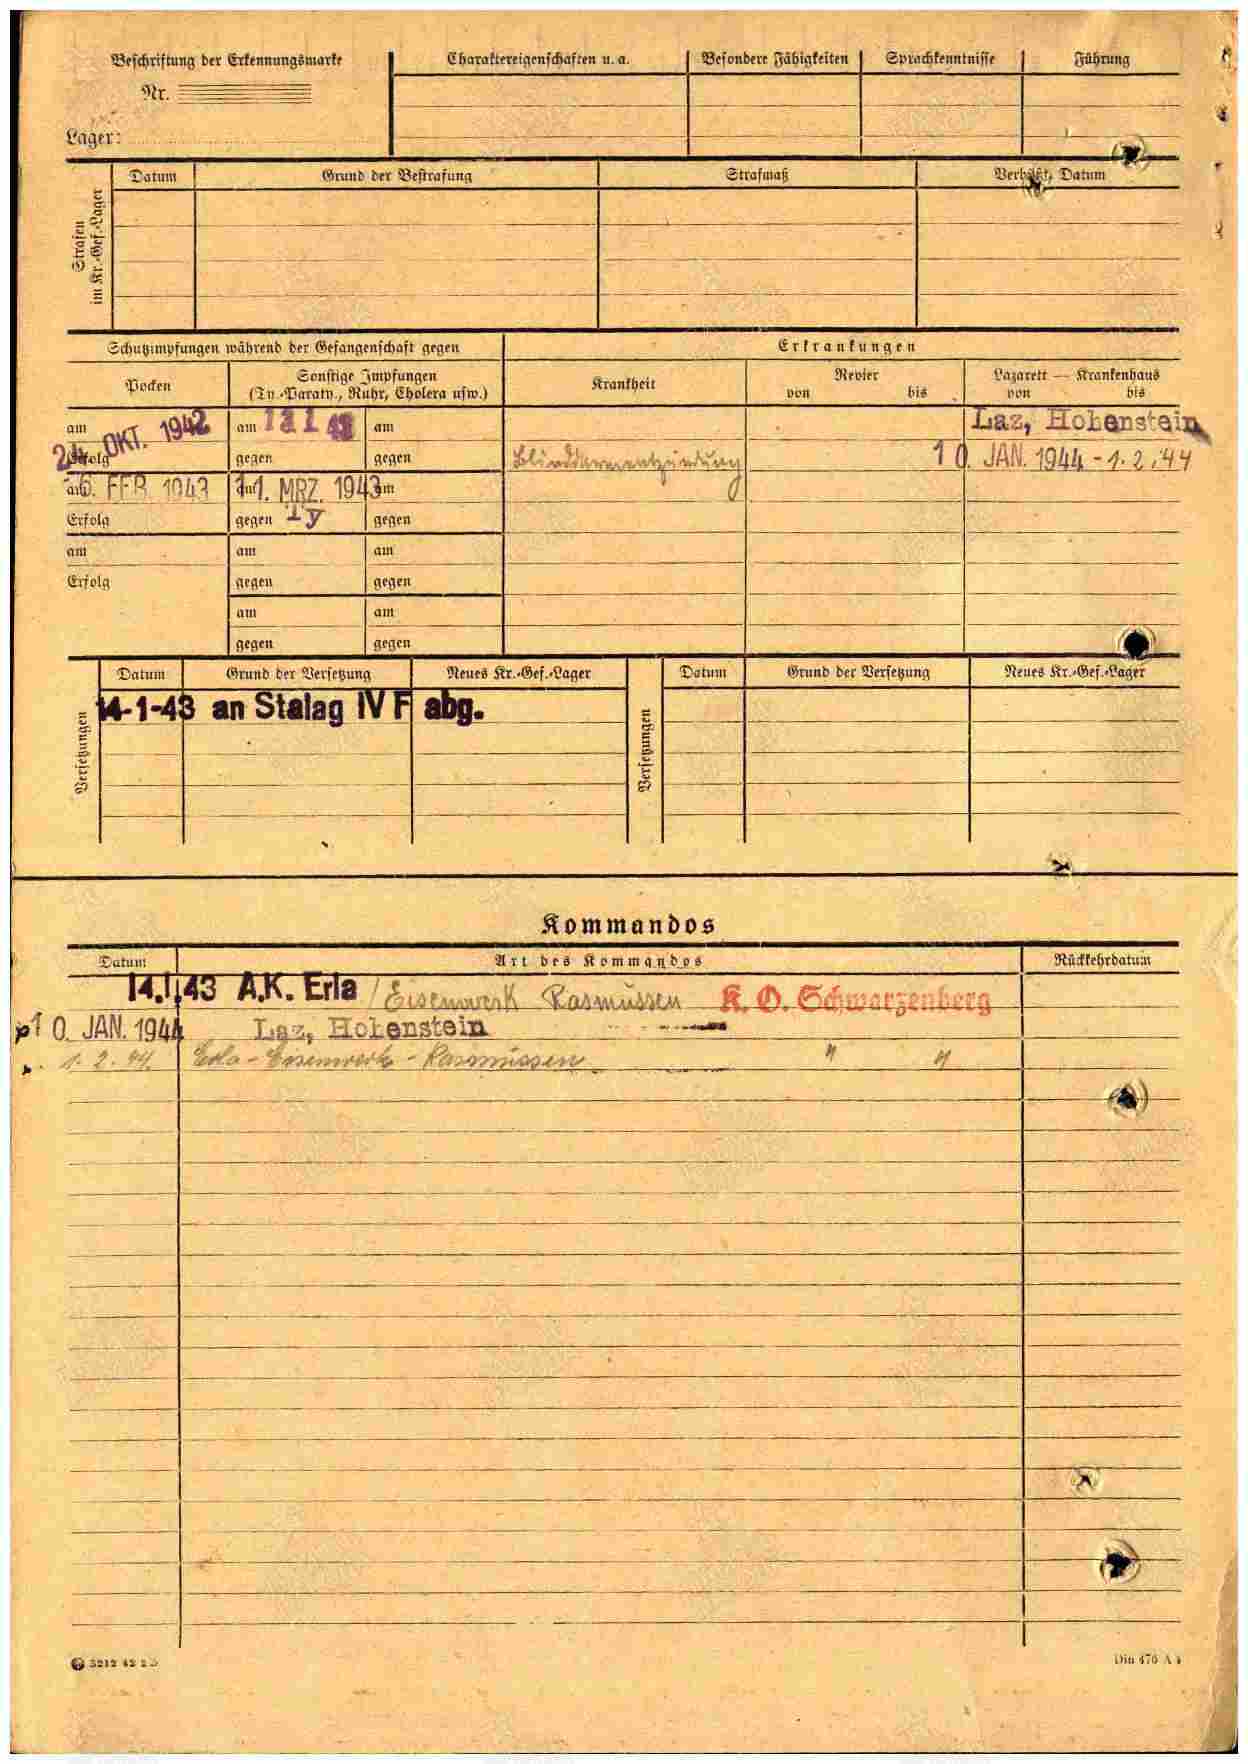 Beschriftung der Erkennungsmarke
Nr.
Lager:
Charaktereigenschaften u. a.
Besondere Fähigkeiten
Sprachkenntnisse
Führung
Strafen
im Kr.-Gef.-Lager
Datum
Grund der Bestrafung
Strafmaß
Verbüßt, Datum
Schutzimpfungen während der Gefangenschaft gegen
Erkrankungen
Pocken
Sonstige Impfungen
(Ty.-Paraty., Ruhr, Cholera usw.)
Krankheit
Revier
von bis
Lazarett — Krankenhaus
von bis
am 24. OKT. 1942
am
am
Laz, Hohenstein
Erfolg
gegen
gegen
Blinddarmentzündung
10. JAN. 1944 - 1.2.44
am 6. FEB. 1943
am 11. MRZ. 1943
am
Erfolg
gegen Ty
gegen
am
am
am
Erfolg
gegen
gegen
am
am
gegen
gegen
Versetzungen
Datum
Grund der Versetzung
Neues Kr.-Gef.-Lager
14-1-43 an Stalag IV F abg.
Versetzungen
Datum
Grund der Versetzung
Neues Kr.-Gef.-Lager
Kommandos
Datum
Art des Kommandos
Rückkehrdatum
14.1.43 A.K. Erla / Eisenwerk Rasmussen K. O. Schwarzenberg
10. JAN. 1944 Laz, Hohenstein
1.2.44. Erla - Eisenwerk - Rasmussen " "
5212 42 2 D
Din 476 A 4